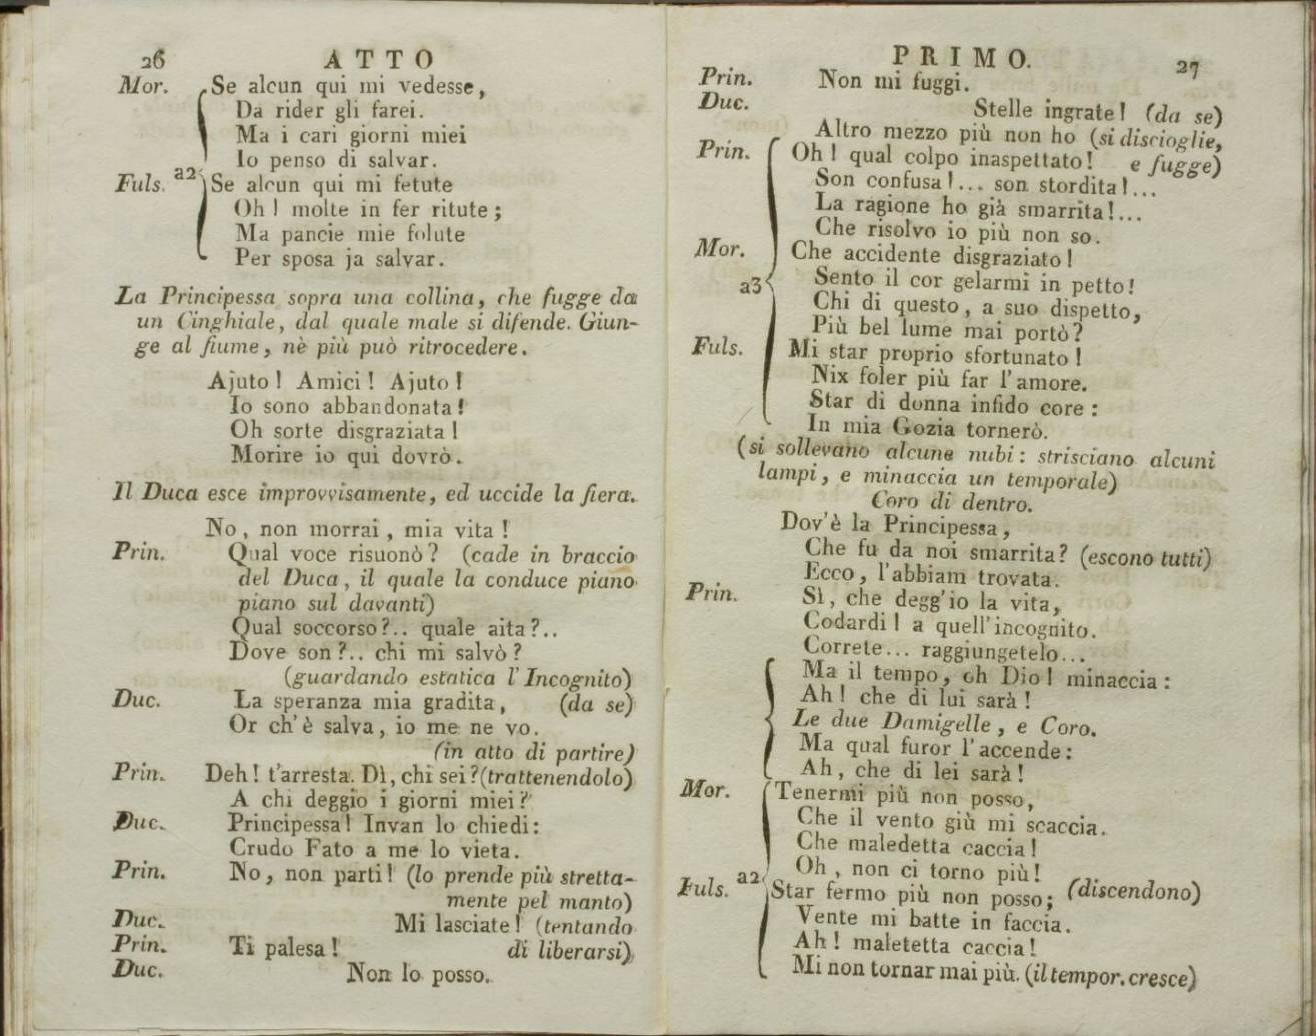 26 ATTO
Mor. Se alcun qui mi vedesse,
Da rider gli farei.
Ma i cari giorni miei
Io penso di salvar.
a2
Fuls. Se alcun qui mi fetute
Oh! molte in fer ritute;
Ma pancie mie folute
Per sposa ja salvar.
La Principessa sopra una collina, che fugge da
un Cinghiale, dal quale male si difende. Giun-
ge al fiume, nè più può ritrocedere.
Ajuto! Amici! Ajuto!
Io sono abbandonata!
Oh sorte disgraziata!
Morire io qui dovrò.
Il Duca esce improvvisamente, ed uccide la fiera.
No, non morrai, mia vita!
Prin. Qual voce risuonò? (cade in braccio
del Duca, il quale la conduce piano
piano sul davanti)
Qual soccorso?.. quale aita?..
Dove son?.. chi mi salvò?
(guardando estatica l'Incognito)
Duc. La speranza mia gradita, (da se)
Or ch'è salva, io me ne vo.
(in atto di partire)
Prin. Deh! t'arresta. Dì, chi sei? (trattenendolo)
A chi deggio i giorni miei?
Duc. Principessa! Invan lo chiedi:
Crudo Fato a me lo vieta.
Prin. No, non parti! (lo prende più stretta-
mente pel manto)
Duc. Mi lasciate! (tentando
Prin. Ti palesa! di liberarsi)
Duc. Non lo posso.
PRIMO. 27
Prin. Non mi fuggi.
Duc. Stelle ingrate! (da se)
Altro mezzo più non ho (si discioglie,
Prin. Oh! qual colpo inaspettato! e fugge)
Son confusa!... son stordita!...
La ragione ho già smarrita!...
Che risolvo io più non so.
Mor. Che accidente disgraziato!
a3 Sento il cor gelarmi in petto!
Chi di questo, a suo dispetto,
Più bel lume mai portò?
Fuls. Mi star proprio sfortunato!
Nix foler più far l'amore.
Star di donna infido core:
In mia Gozia tornerò.
(si sollevano alcune nubi: strisciano alcuni
lampi, e minaccia un temporale)
Coro di dentro.
Dov'è la Principessa,
Che fu da noi smarrita? (escono tutti)
Ecco, l'abbiam trovata.
Prin. Sì, che degg'io la vita,
Codardi! a quell'incognito.
Correte... raggiungetelo...
Ma il tempo, oh Dio! minaccia:
Ah! che di lui sarà!
Le due Damigelle, e Coro.
Ma qual furor l'accende:
Ah, che di lei sarà!
Mor. Tenermi più non posso,
Che il vento giù mi scaccia.
Che maledetta caccia!
Oh, non ci torno più!
a2 (discendono)
Fuls. Star fermo più non posso;
Vente mi batte in faccia.
Ah! maletetta caccia!
Mi non tornar mai più. (il tempor. cresce)